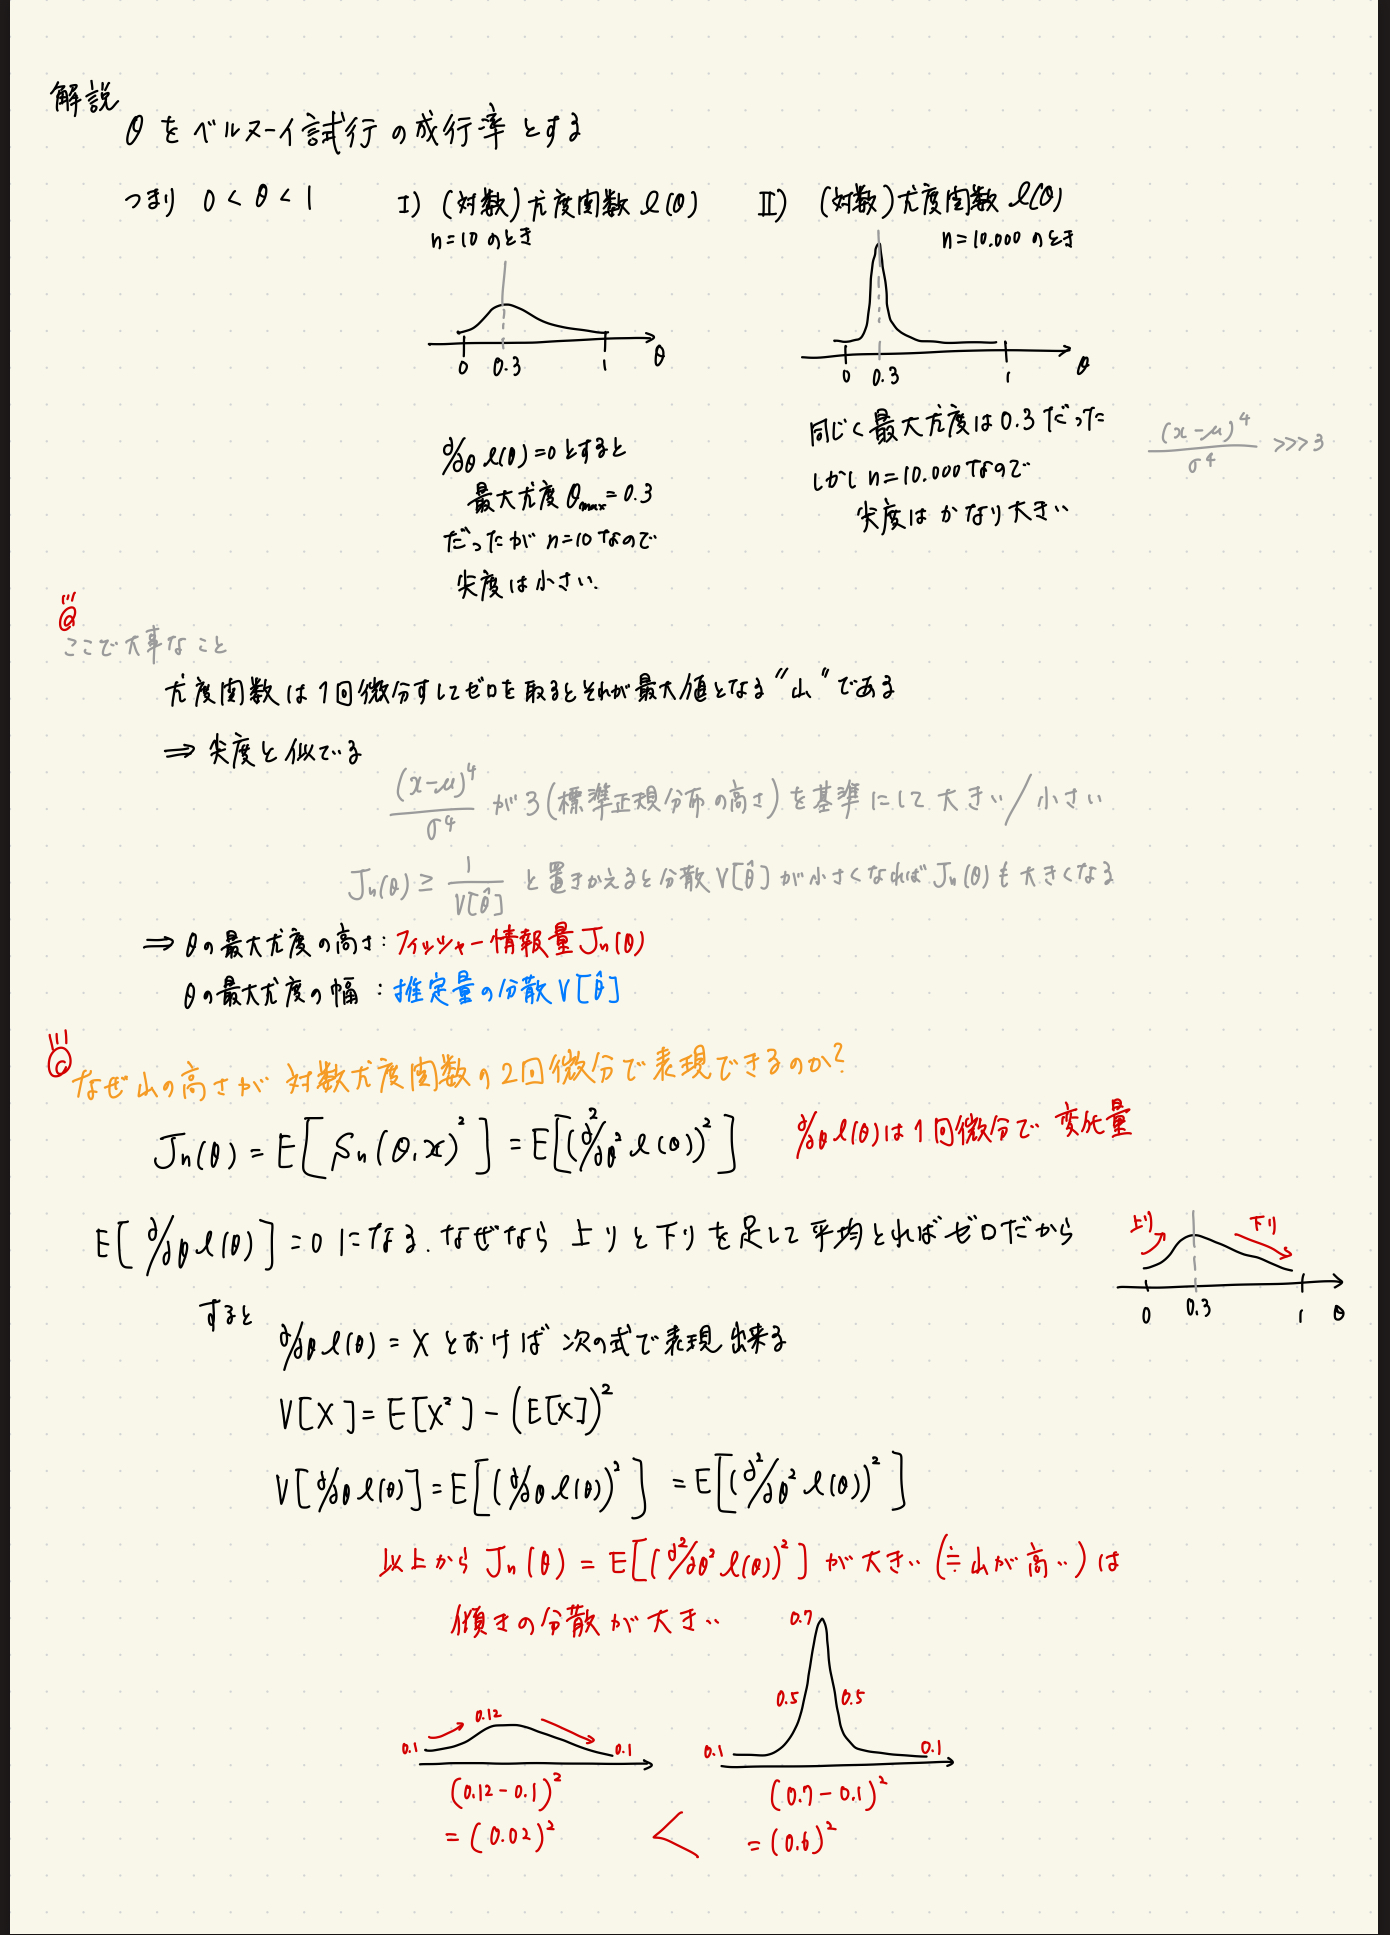 解説
θ を ベルヌーイ試行 の 成行率 とする
つまり 0 < θ < 1
I) (対数) 尤度関数 l(θ)
n=10 のとき
0 0.3 1 θ
∂/∂θ l(θ) = 0 とすると
最大尤度 θmax = 0.3
だったが n=10 なので
尖度は小さい.
II) (対数) 尤度関数 l(θ)
n=10.000 のとき
0 0.3 1 θ
同じく最大尤度は 0.3 だった
しかし n=10.000 なので
尖度は かなり大きい
(x-μ)^4/σ^4 >>> 3
ここで大事なこと
尤度関数は1回微分すしてゼロを取るとそれが最大値となる"山"である
⇒ 尖度と似ている
(x-μ)^4/σ^4 が 3 (標準正規分布の高さ) を基準にして 大きい/小さい
Jn(θ) ≥ 1/V[θ̂] と置きかえると分散 V[θ̂] が小さくなれば Jn(θ) も大きくなる
⇒ θの最大尤度の高さ: フィッシャー情報量 Jn(θ)
θの最大尤度の幅 : 推定量の分散 V[θ̂]
なぜ山の高さが 対数尤度関数の2回微分で表現できるのか?
Jn(θ) = E[Sn(θ,x)^2] = E[(∂^2/∂θ^2 l(θ))^2]
∂/∂θ l(θ)は1回微分で 変化量
E[∂/∂θ l(θ)] = 0 になる. なぜなら 上りと下りを足して平均とればゼロだから
上り 下り
0 0.3 1 θ
すると
∂/∂θ l(θ) = X とおけば 次の式で表現出来る
V[X] = E[X^2] - (E[X])^2
V[∂/∂θ l(θ)] = E[(∂/∂θ l(θ))^2] = E[(∂^2/∂θ^2 l(θ))^2]
以上から Jn(θ) = E[(∂^2/∂θ^2 l(θ))^2] が 大きい (≒山が高い) は
傾きの分散が大きい
0.1 0.12 0.1
(0.12-0.1)^2
= (0.02)^2
<
0.1 0.5 0.7 0.5 0.1
(0.7-0.1)^2
= (0.6)^2